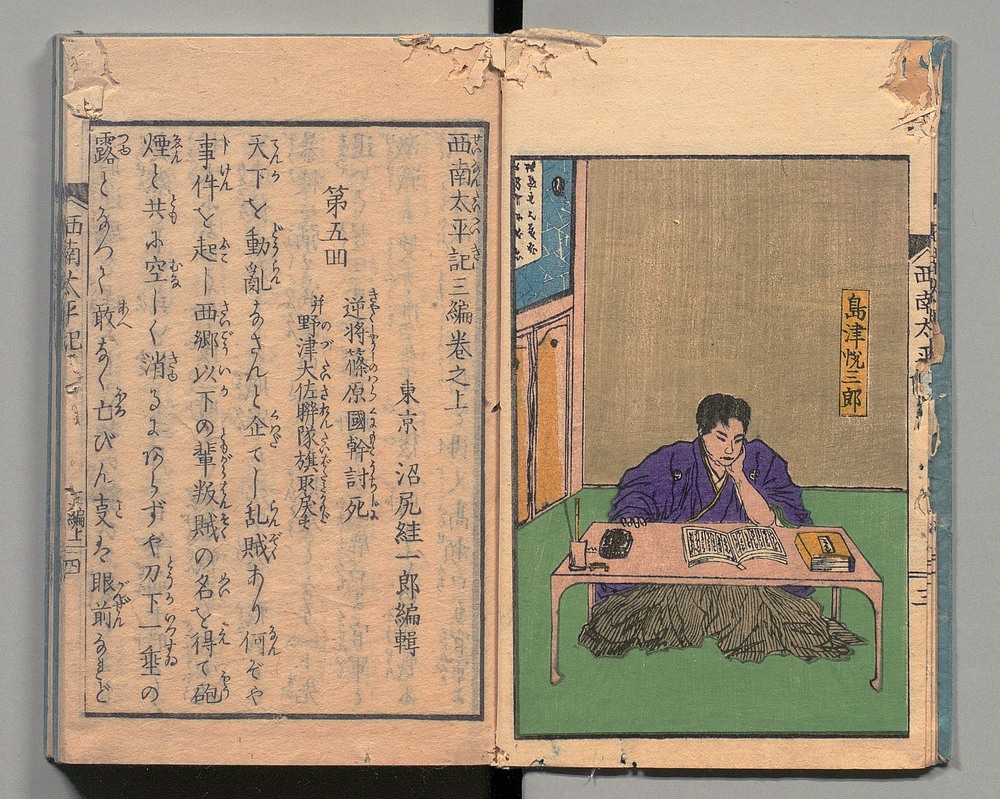 島津悦三郎
西南太平記三編巻之上
東京 沼尻絓一郎編輯
第五回
逆将篠原國幹討死
并野津大佐聯隊旗取戻す
天下を動亂なさんと企てし乱賊あり何ぞや
事件を起し西郷以下の輩叛賊の名を得て砲
煙と共に空しく消るにあらずや刀下一垂の
露となつて敢なく亡びん支は眼前なれど
西南太平記
三編上
四